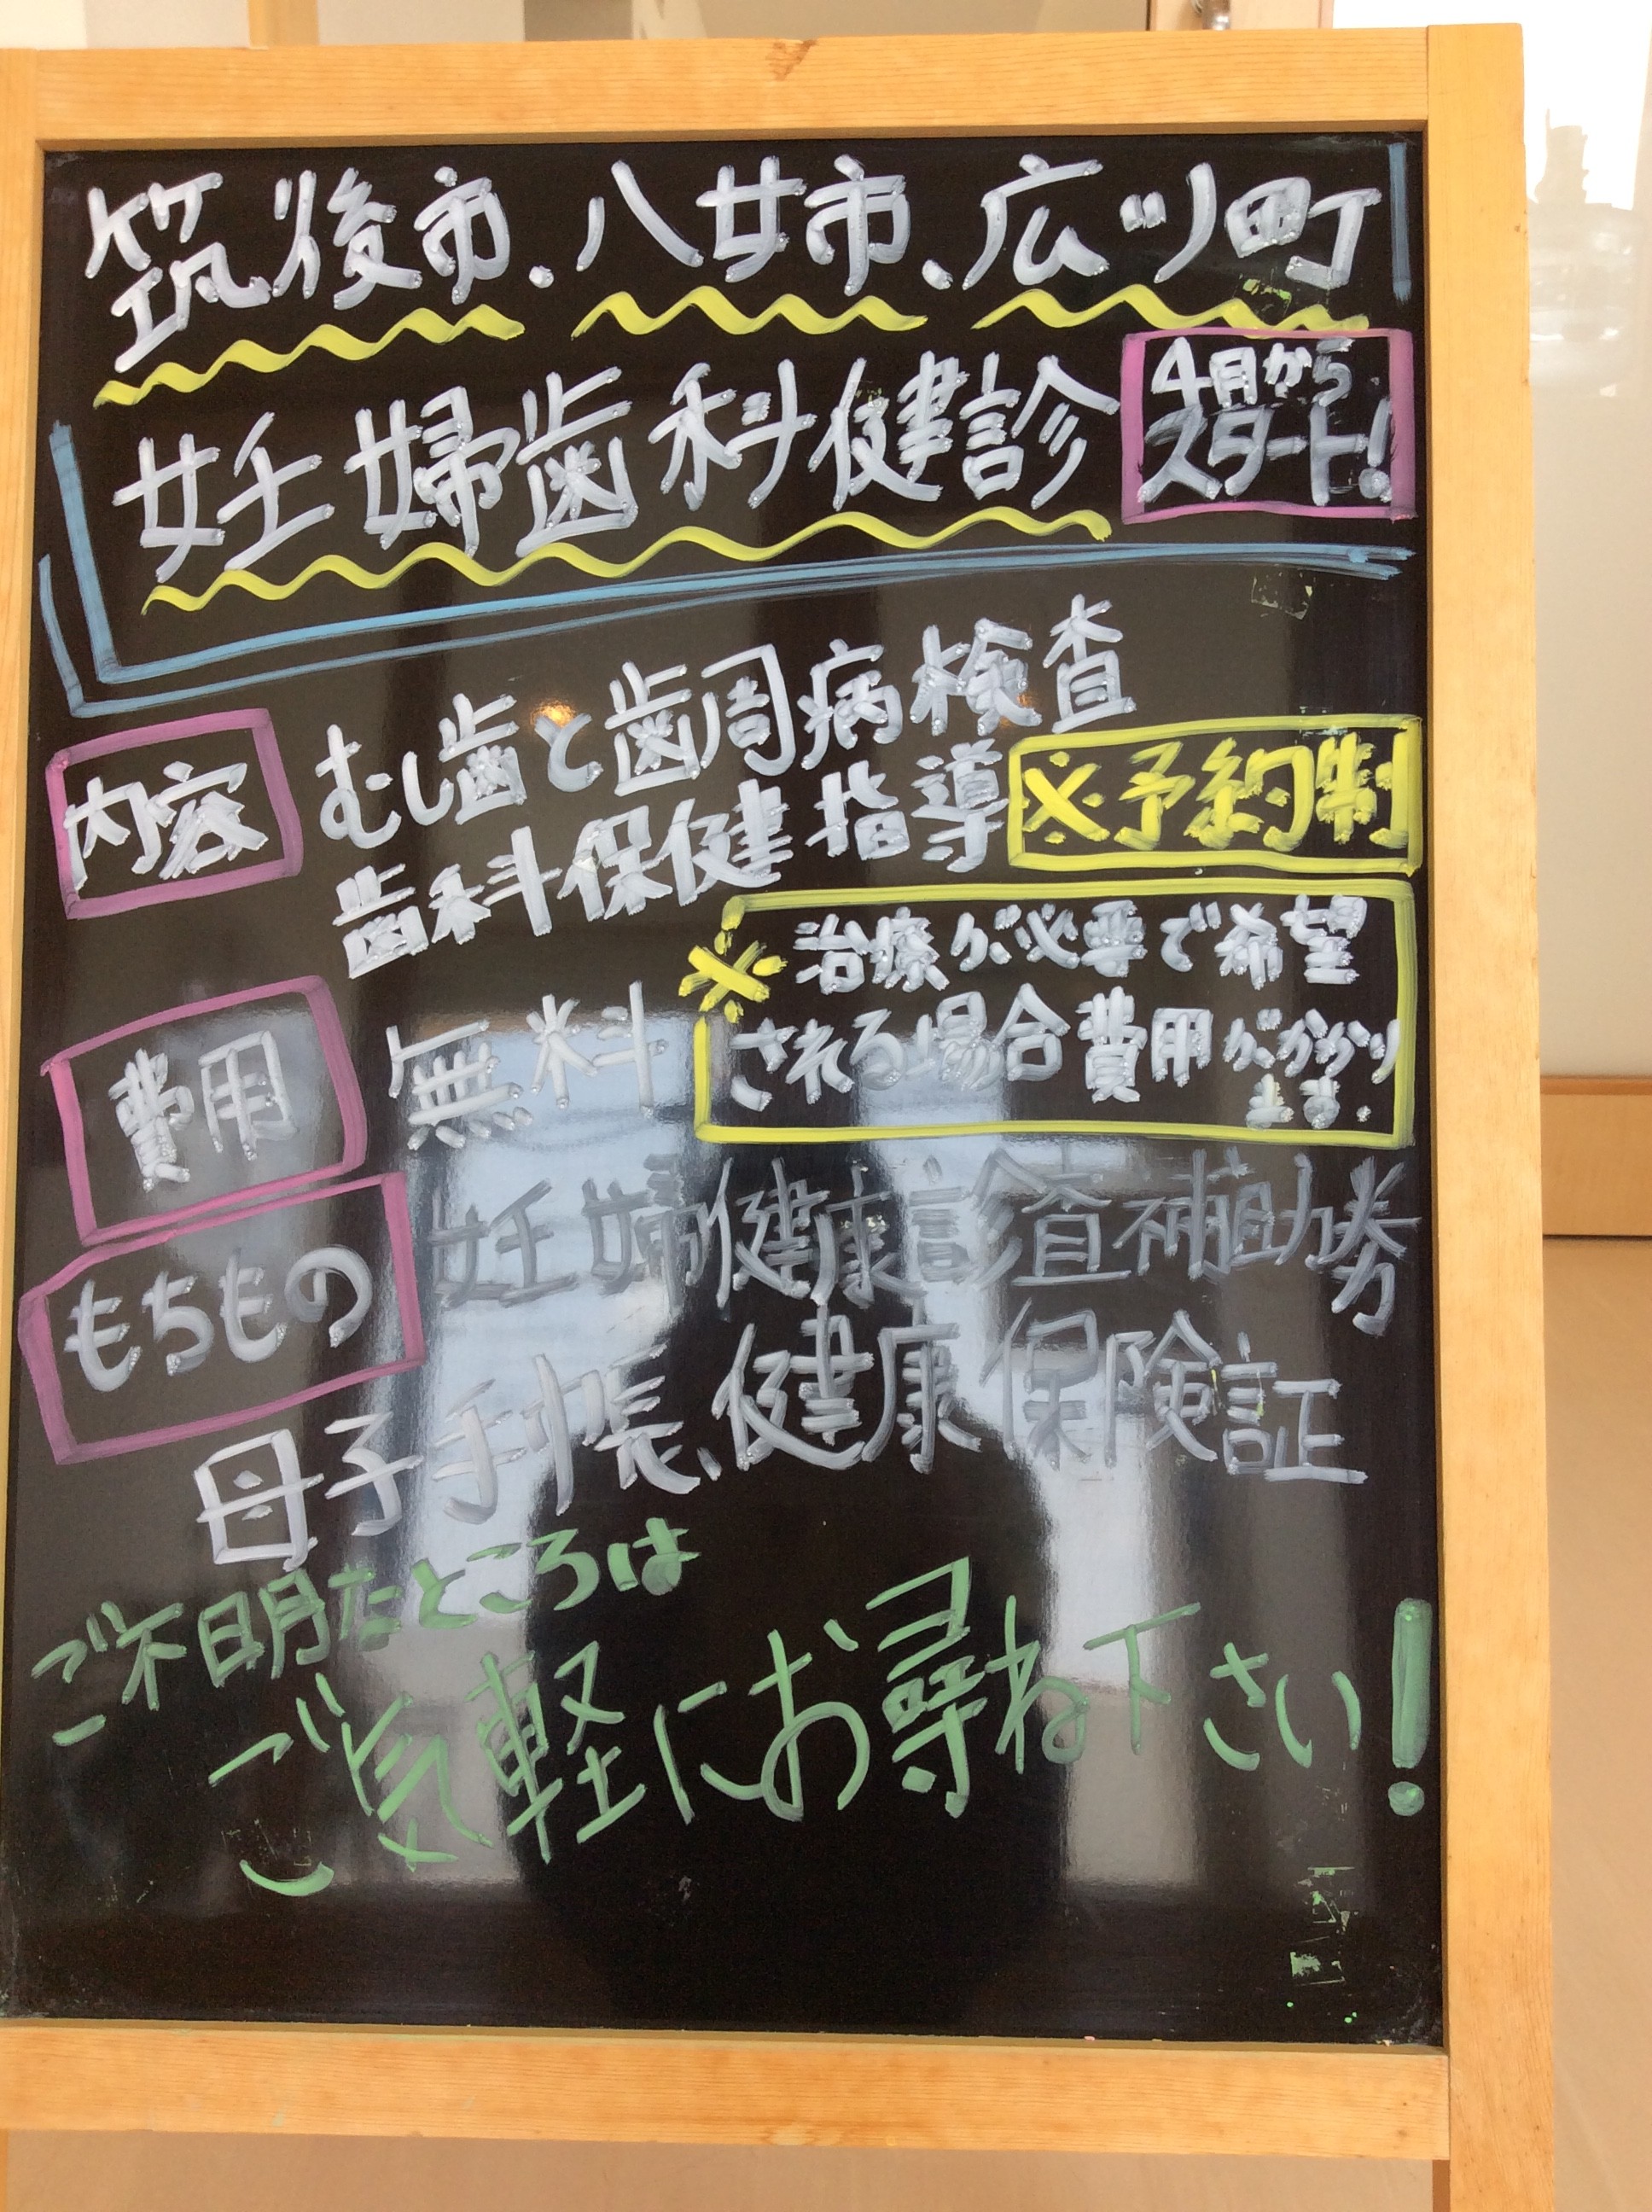 筑後市、八女市、広川町
妊婦歯科健診
4月から
スタート!
内容
むし歯と歯周病検査
歯科保健指導
※予約制
費用
無料
※治療が必要で希望
される場合費用がかかり
ます.
もちもの
妊婦健康診査補助券
母子手帳、健康保険証
ご不明なところは
ご気軽にお尋ね下さい!